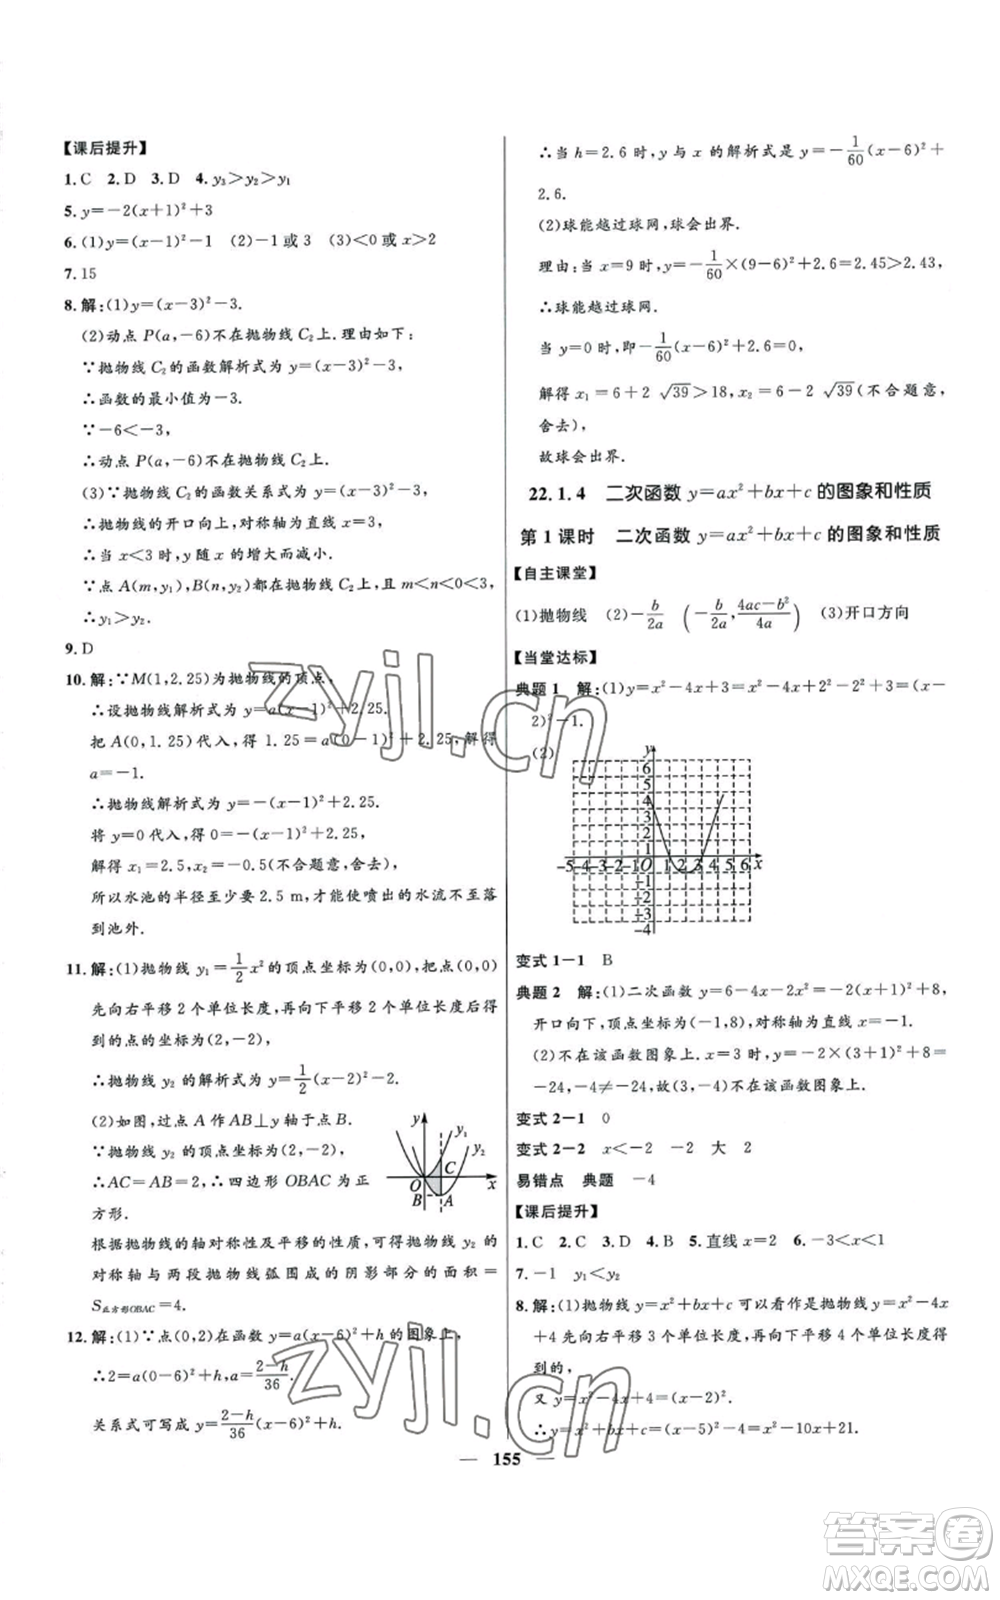 【课后提升】
1. C 2. D 3. D 4. y₃>y₂>y₁
5. y=-2(x+1)²+3
6. (1)y=(x-1)²-1 (2)-1或3 (3)<0或x>2
7. 15
8. 解:(1)y=(x-3)²-3.
(2)动点P(a,-6)不在抛物线C₂上.理由如下:
∵抛物线C₂的函数解析式为y=(x-3)²-3,
∴函数的最小值为-3.
∵-6<-3,
∴动点P(a,-6)不在抛物线C₂上.
(3)∵抛物线C₂的函数关系式为y=(x-3)²-3,
∴抛物线的开口向上,对称轴为直线x=3,
∴当x<3时,y随x的增大而减小.
∵点A(m,y₁),B(n,y₂)都在抛物线C₂上,且m<n<0<3,
∴y₁>y₂.
9. D
10. 解:∵M(1,2.25)为抛物线的顶点,
∴设抛物线解析式为y=a(x-1)²+2.25.
把A(0,1.25)代入,得1.25=a(0-1)²+2.25,解得
a=-1.
∴抛物线解析式为y=-(x-1)²+2.25.
将y=0代入,得0=-(x-1)²+2.25,
解得x₁=2.5,x₂=-0.5(不合题意,舍去),
所以水池的半径至少要2.5 m,才能使喷出的水流不至落
到池外.
11. 解:(1)抛物线y₁=1/2x²的顶点坐标为(0,0),把点(0,0)
先向右平移2个单位长度,再向下平移2个单位长度后得
到的点的坐标为(2,-2),
∴抛物线y₂的解析式为y=1/2(x-2)²-2.
(2)如图,过点A作AB⊥y轴于点B.
∵抛物线y₂的顶点坐标为A(2,-2),
∴AC=AB=2,∴四边形OBAC为正
方形.
y y₁ y₂ C O x B A
根据抛物线的轴对称性及平移的性质,可得抛物线y₂
的对称轴与两段抛物线弧围成的阴影部分的面积=
S正方形OBAC=4.
12. 解:(1)∵点(0,2)在函数y=a(x-6)²+h的图象上,
∴2=a(0-6)²+h,a=(2-h)/36.
关系式可写成y=(2-h)/36(x-6)²+h.
∴当h=2.6时,y与x的解析式是y=-1/60(x-6)²+
2.6.
(2)球能越过球网,球会出界.
理由:当x=9时,y=-1/60×(9-6)²+2.6=2.45>2.43,
∴球能越过球网.
当y=0时,即-1/60(x-6)²+2.6=0,
解得x₁=6+2√39>18,x₂=6-2√39(不合题意,
舍去),
故球会出界.
22.1.4 二次函数y=ax²+bx+c的图象和性质
第1课时 二次函数y=ax²+bx+c的图象和性质
【自主课堂】
(1)抛物线 (2)-b/2a (-b/2a,(4ac-b²)/4a) (3)开口方向
【当堂达标】
典题1 解:(1)y=x²-4x+3=x²-4x+2²-2²+3=(x-
2)²-1.
(2)
y
6
5
4
3
2
1
-5-4-3-2-1O 1 2 3 4 5 6 x
-1
-2
-3
-4
变式1-1 B
典题2 解:(1)二次函数y=6-4x-2x²=-2(x+1)²+8,
开口向下,顶点坐标为(-1,8),对称轴为直线x=-1.
(2)不在该函数图象上.x=3时,y=-2×(3+1)²+8=
-24,-24≠-4,故(3,-4)不在该函数图象上.
变式2-1 0
变式2-2 x<-2 -2 大 2
易错点 典题 -4
【课后提升】
1. C 2. C 3. D 4. B 5. 直线x=2 6. -3<x<1
7. -1 y₁<y₂
8. 解:(1)抛物线y=x²+bx+c可以看作是抛物线y=x²-4x
+4先向右平移3个单位长度,再向下平移4个单位长度得
到的,
又y=x²-4x+4=(x-2)².
∴y=x²+bx+c=(x-5)²-4=x²-10x+21.
155
zyjl.cn
zyjl.cn
答案圈
MXQE.COM